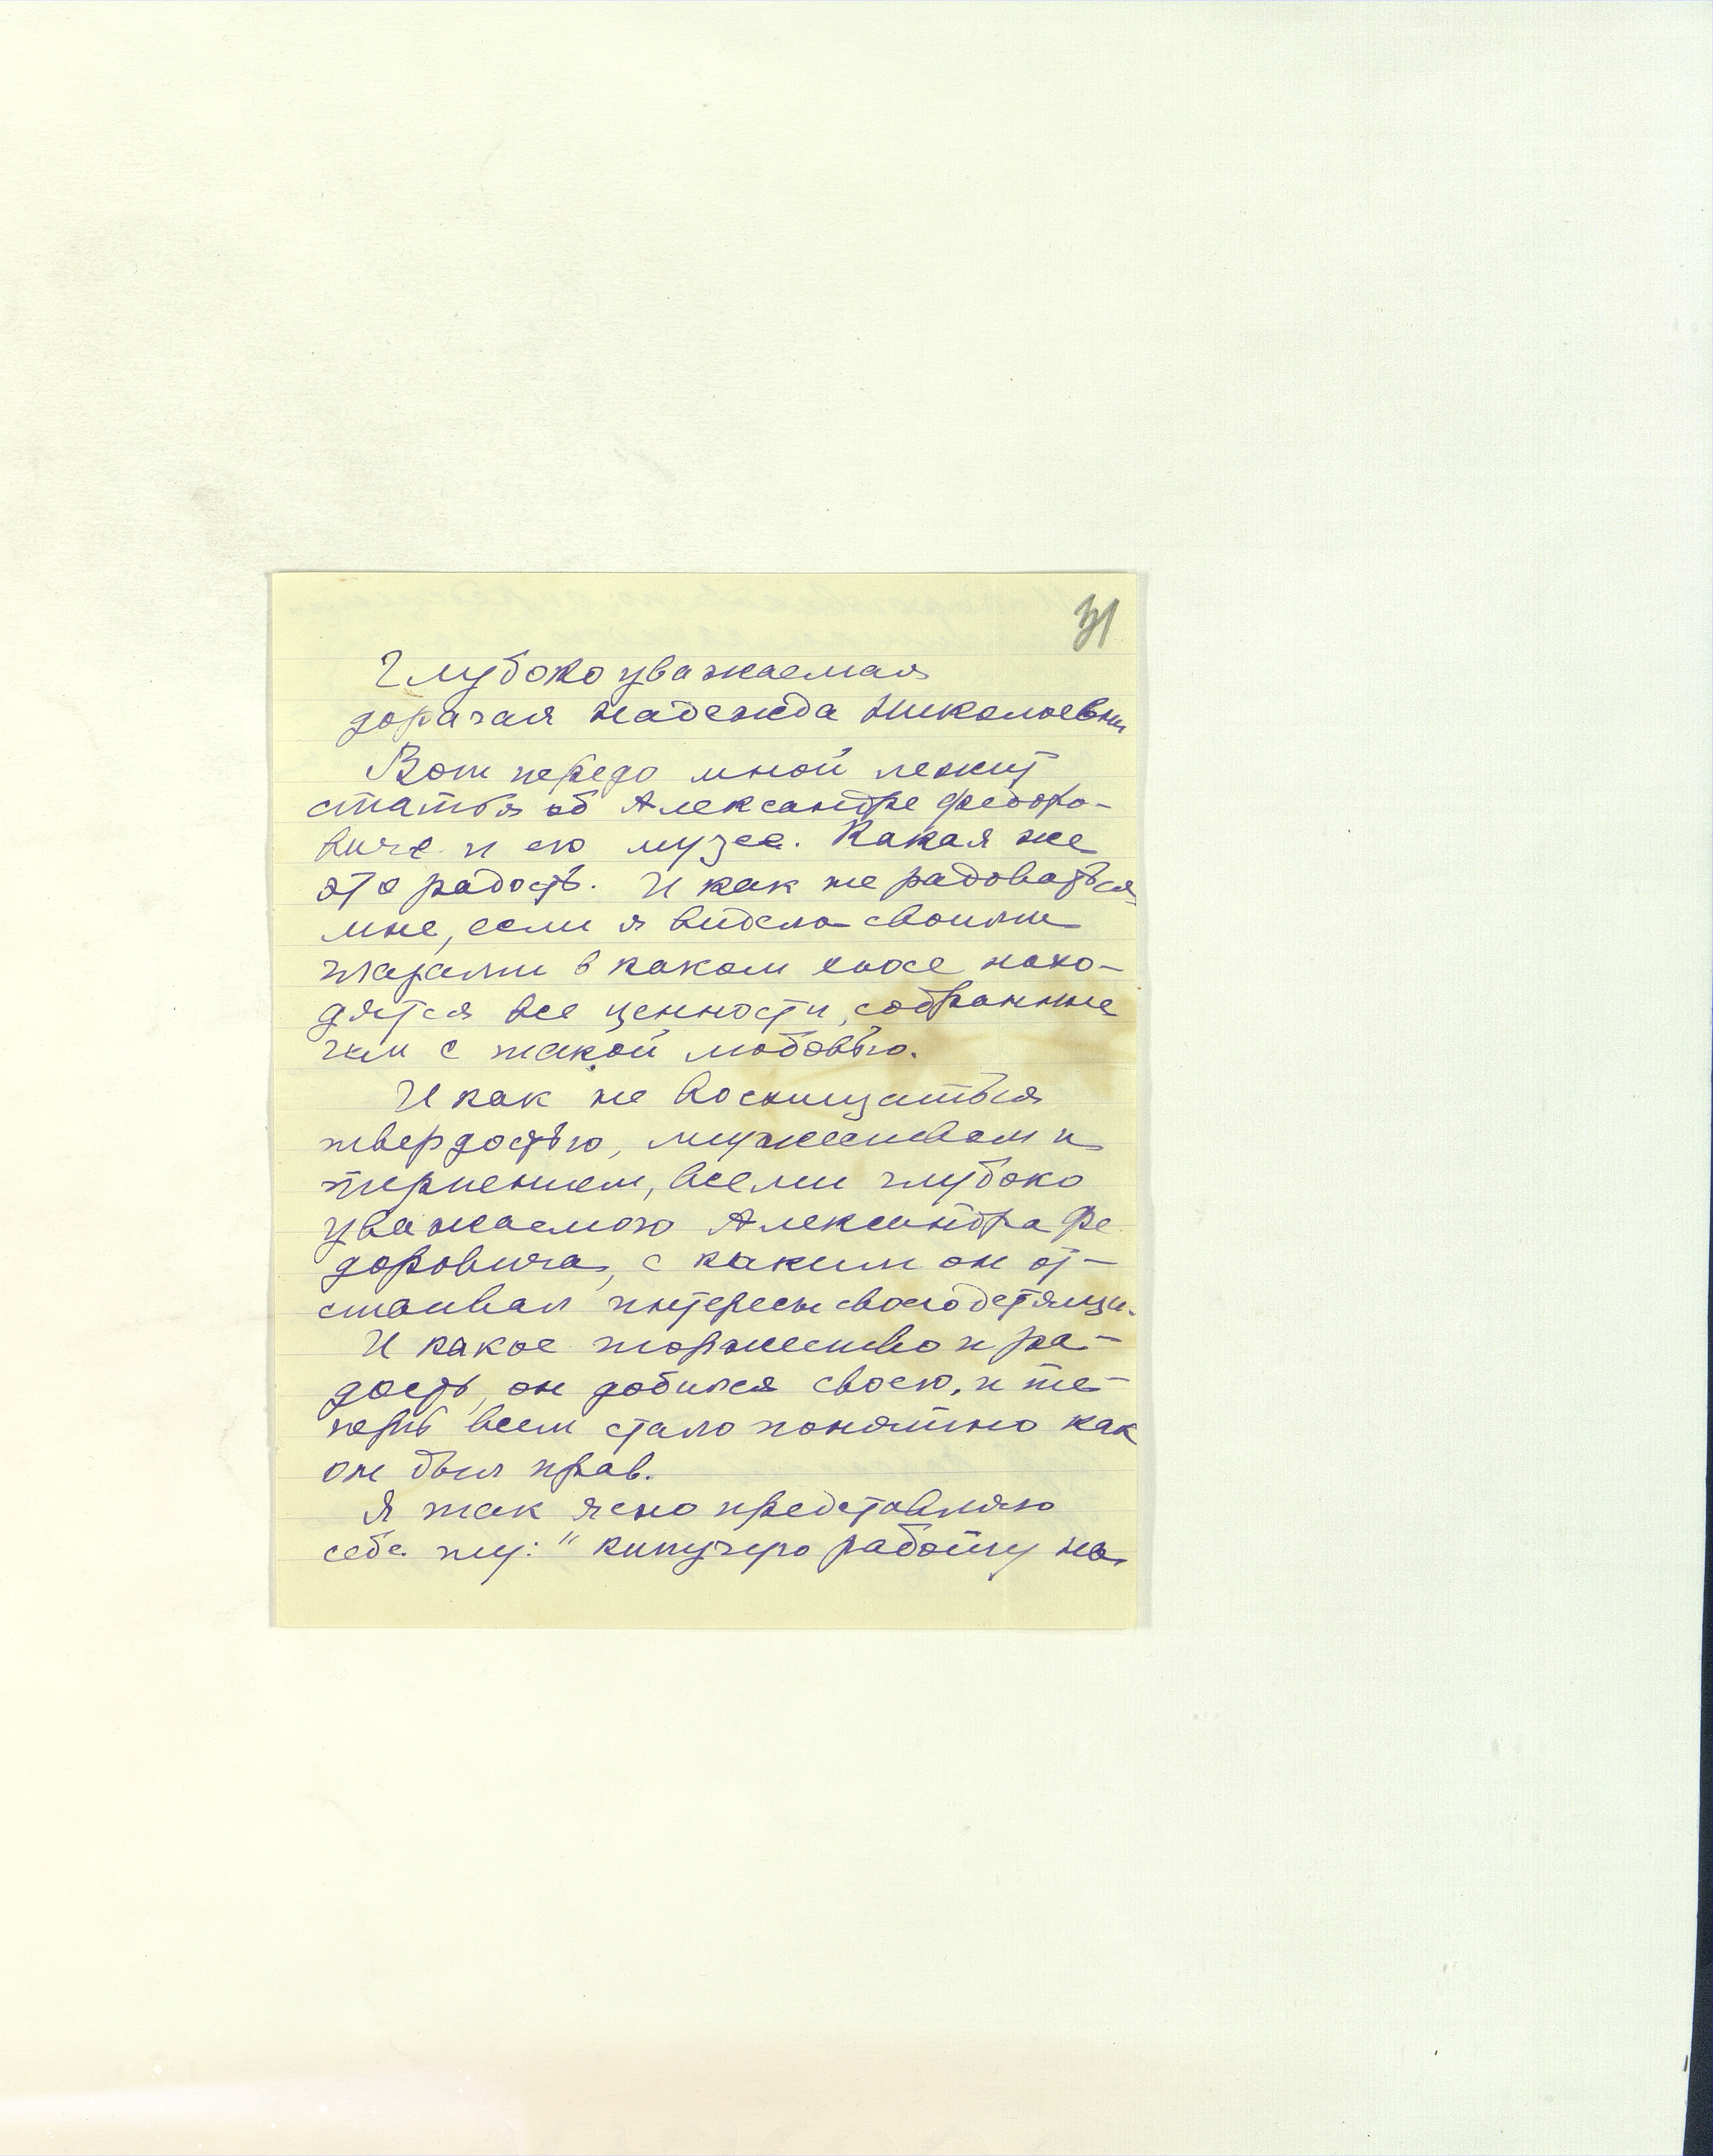 31
Глубокоуважаемая
дорогая Надежда Николаевна
Вот передо мной лежит
статья об Александре Федоро-
виче и его музее. Какая же
это радость. И как не радоваться
мне, если я видела своими
глазами в каком хаосе нахо-
дятся все ценности, собранные
им с такой любовью.
И как не восхищаться
твердостью, мужеством и
терпением, всеми глубоко
уважаемого Александра Фе
доровича, с каким он от-
стаивал интересы своего детища.
И какое торжество и ра-
дость, он добился своего, и те-
перь всем стало понятно как
он был прав.
Я так ясно представляю
себе эту: "кипучую работу на